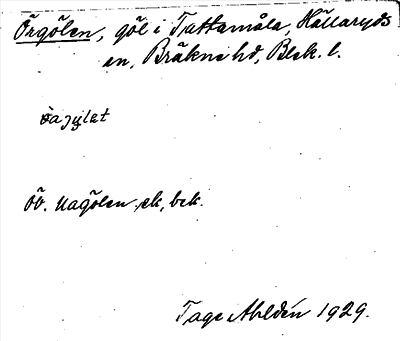 Örgölen, göl i Tattamåla, Hällaryds
sn, Bräkne hd, Blek. l.
Öv. Nagölen. ek, bek.
Tage Ahldén 1929.